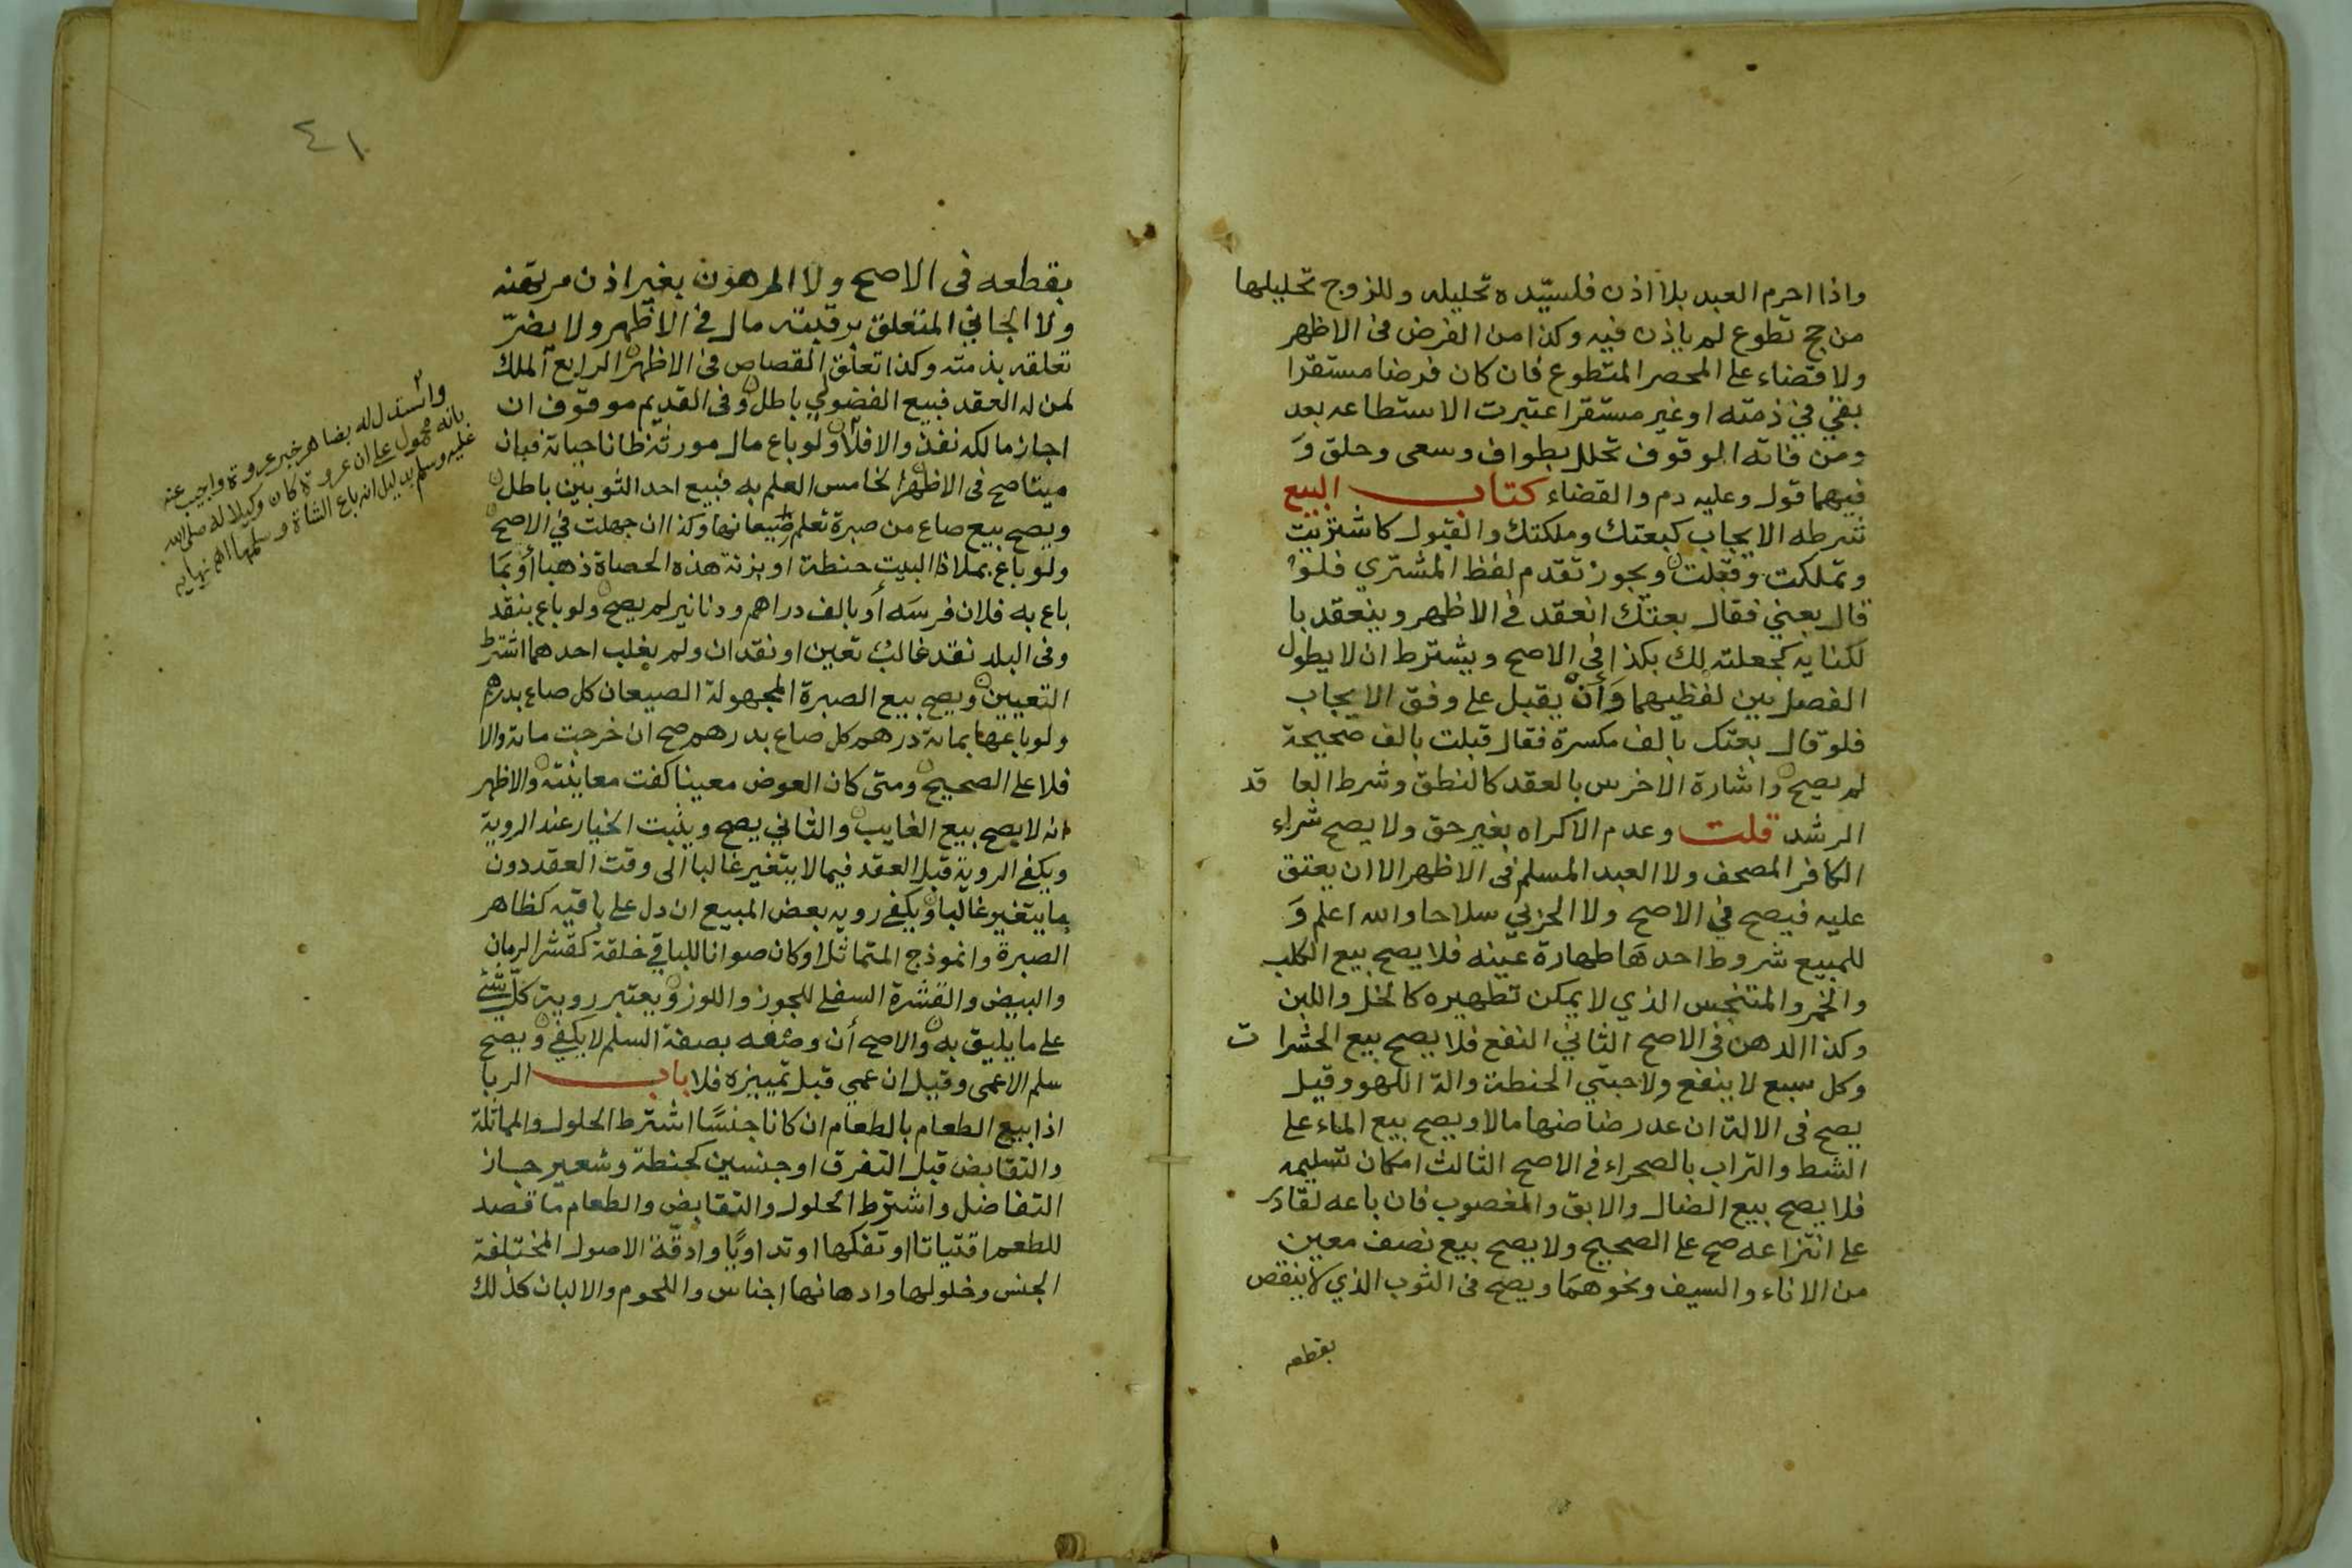 واذا احرم العبد بلا اذن فلسيّده تحليله وللزوج تحليلها
من حج تطوع لم ياذن فيه وكذا من الفرض في الاظهر
ولا قضاء على المحصر المتطوع فان كان فرضا مستقرا
بقي في ذمته او غير مستقر اعتبرت الاستطاعه بعد
ومن فاته الوقوف تحلل بطواف وسعى وحلق وَ
فيهما قول وعليه دم والقضاء كتاب البيع
شرطه الايجاب كبعتك وملكتك والقبول كاشتريت
وتملكت وقبلت ويجوز تقدم لفظ المشتري فلو
قال بعني فقال بعتك انعقد في الاظهر وينعقد با
لكنايه كجعلته لك بكذا في الاصح ويشترط ان لا يطول
الفصل بين لفظيهما وَأن يقبل على وفق الايجاب
فلو قال بعتك بالف مكسرة فقال قبلت بالف صحيحة
لم يصح واشارة الاخرس بالعقد كالنطق وشرط العا قد
الرشد قلت وعدم الاكراه بغير حق ولا يصح شراء
الكافر المصحف ولا العبد المسلم في الاظهر الا ان يعتق
عليه فيصح في الاصح ولا الحربي سلاحا والله اعلم وَ
للمبيع شروط احدها طهارة عينه فلا يصح بيع الكلب
والخمر والمتنجس الذي لا يمكن تطهيره كالخل واللبن
وكذا الدهن في الاصح الثاني النفع فلا يصح بيع الحشرا ت
وكل سبع لا ينفع ولا حبتي الحنطة والة اللهو وقيل
يصح في الالة ان عد رضاضها مالا ويصح بيع الماء على
الشط والتراب بالصحراء في الاصح الثالث امكان تسليمه
فلا يصح بيع الضال والابق والمغصوب فان باعه لقادر
على انتزاعه صح على الصحيح ولا يصح بيع نصف معين
من الاناء والسيف ونحوهما ويصح في الثوب الذي لا ينقص
بقطعه
٤١
بقطعه في الاصح ولا المرهون بغير اذن مرتهنه
ولا الجاني المتعلق برقبته مال في الاظهر ولا يضرّ
تعلقه بذمته وكذا تعلق القصاص في الاظهر الرابع الملك
لمن له العقد فبيع الفضولي باطل وفي القديم موقوف ان
اجاز مالكه نفذ والا فلا ولو باع مال مورثه ظانا حياته فبان
ميتا صح في الاظهر الخامس العلم به فبيع احد الثوبين باطل
ويصح بيع صاع من صبرة تعلم صيعانها وكذا ان جهلت في الاصح
ولو باع بملاذا البيت حنطة او بزنة هذه الحصاة ذهبا أو بمَا
باع به فلان فرسَه أو بالف دراهم ودنانير لم يصح ولو باع بنقد
وفي البلد نقد غالب تعين او نقدان ولم يغلب احدهما اشترط
التعيين ويصح بيع الصبرة المجهولة الصيعان كل صاع بدرهم
ولو باعها بماتة درهم كل صاع بدرهم صح ان خرجت ماتة والا
فلا على الصحيح ومتى كان العوض معينا كفت معاينته والاظهر
انه لا يصح بيع الغايب والثاني يصح ويثبت الخيار عند الروية
ويكفي الروية قبل العقد فيما لا يتغير غالبا الى وقت العقد دون
ما يتغير غالبا ويكفي رويه بعض المبيع ان دل على باقيه كظاهر
الصبرة وانموذج المتماثل او كان صوانا للباقي خلقة كقشر الرمان
والبيض والقشرة السفلى للجوز واللوز ويعتبر روية كلّ شئ
على ما يليق به والاصح أن وصفه بصفة السلم لا يكفي ويصح
سلم الاعمى وقيل ان عمي قبل تمييزه فلا باب الربا
اذا بيع الطعام بالطعام ان كانا جنسًا اشترط الحلول والمماثلة
والتقابض قبل التفرق او جنسين كحنطة وشعير جاز
التفاضل واشترط الحلول والتقابض والطعام ما قصد
للطعم اقتياتا او تفكها او تداويًا وادقة الاصول المختلفة
الجنس وخلولها وادهانها اجناس واللحوم والالبان كذلك
واستدل له بضاهر خبر عروة واجيب عنه
بانه محمول على ان عروة كان وكيلا له صلى الله
عليه وسلم بدليل انه باع الشاة وسلمها اهـ نهايه